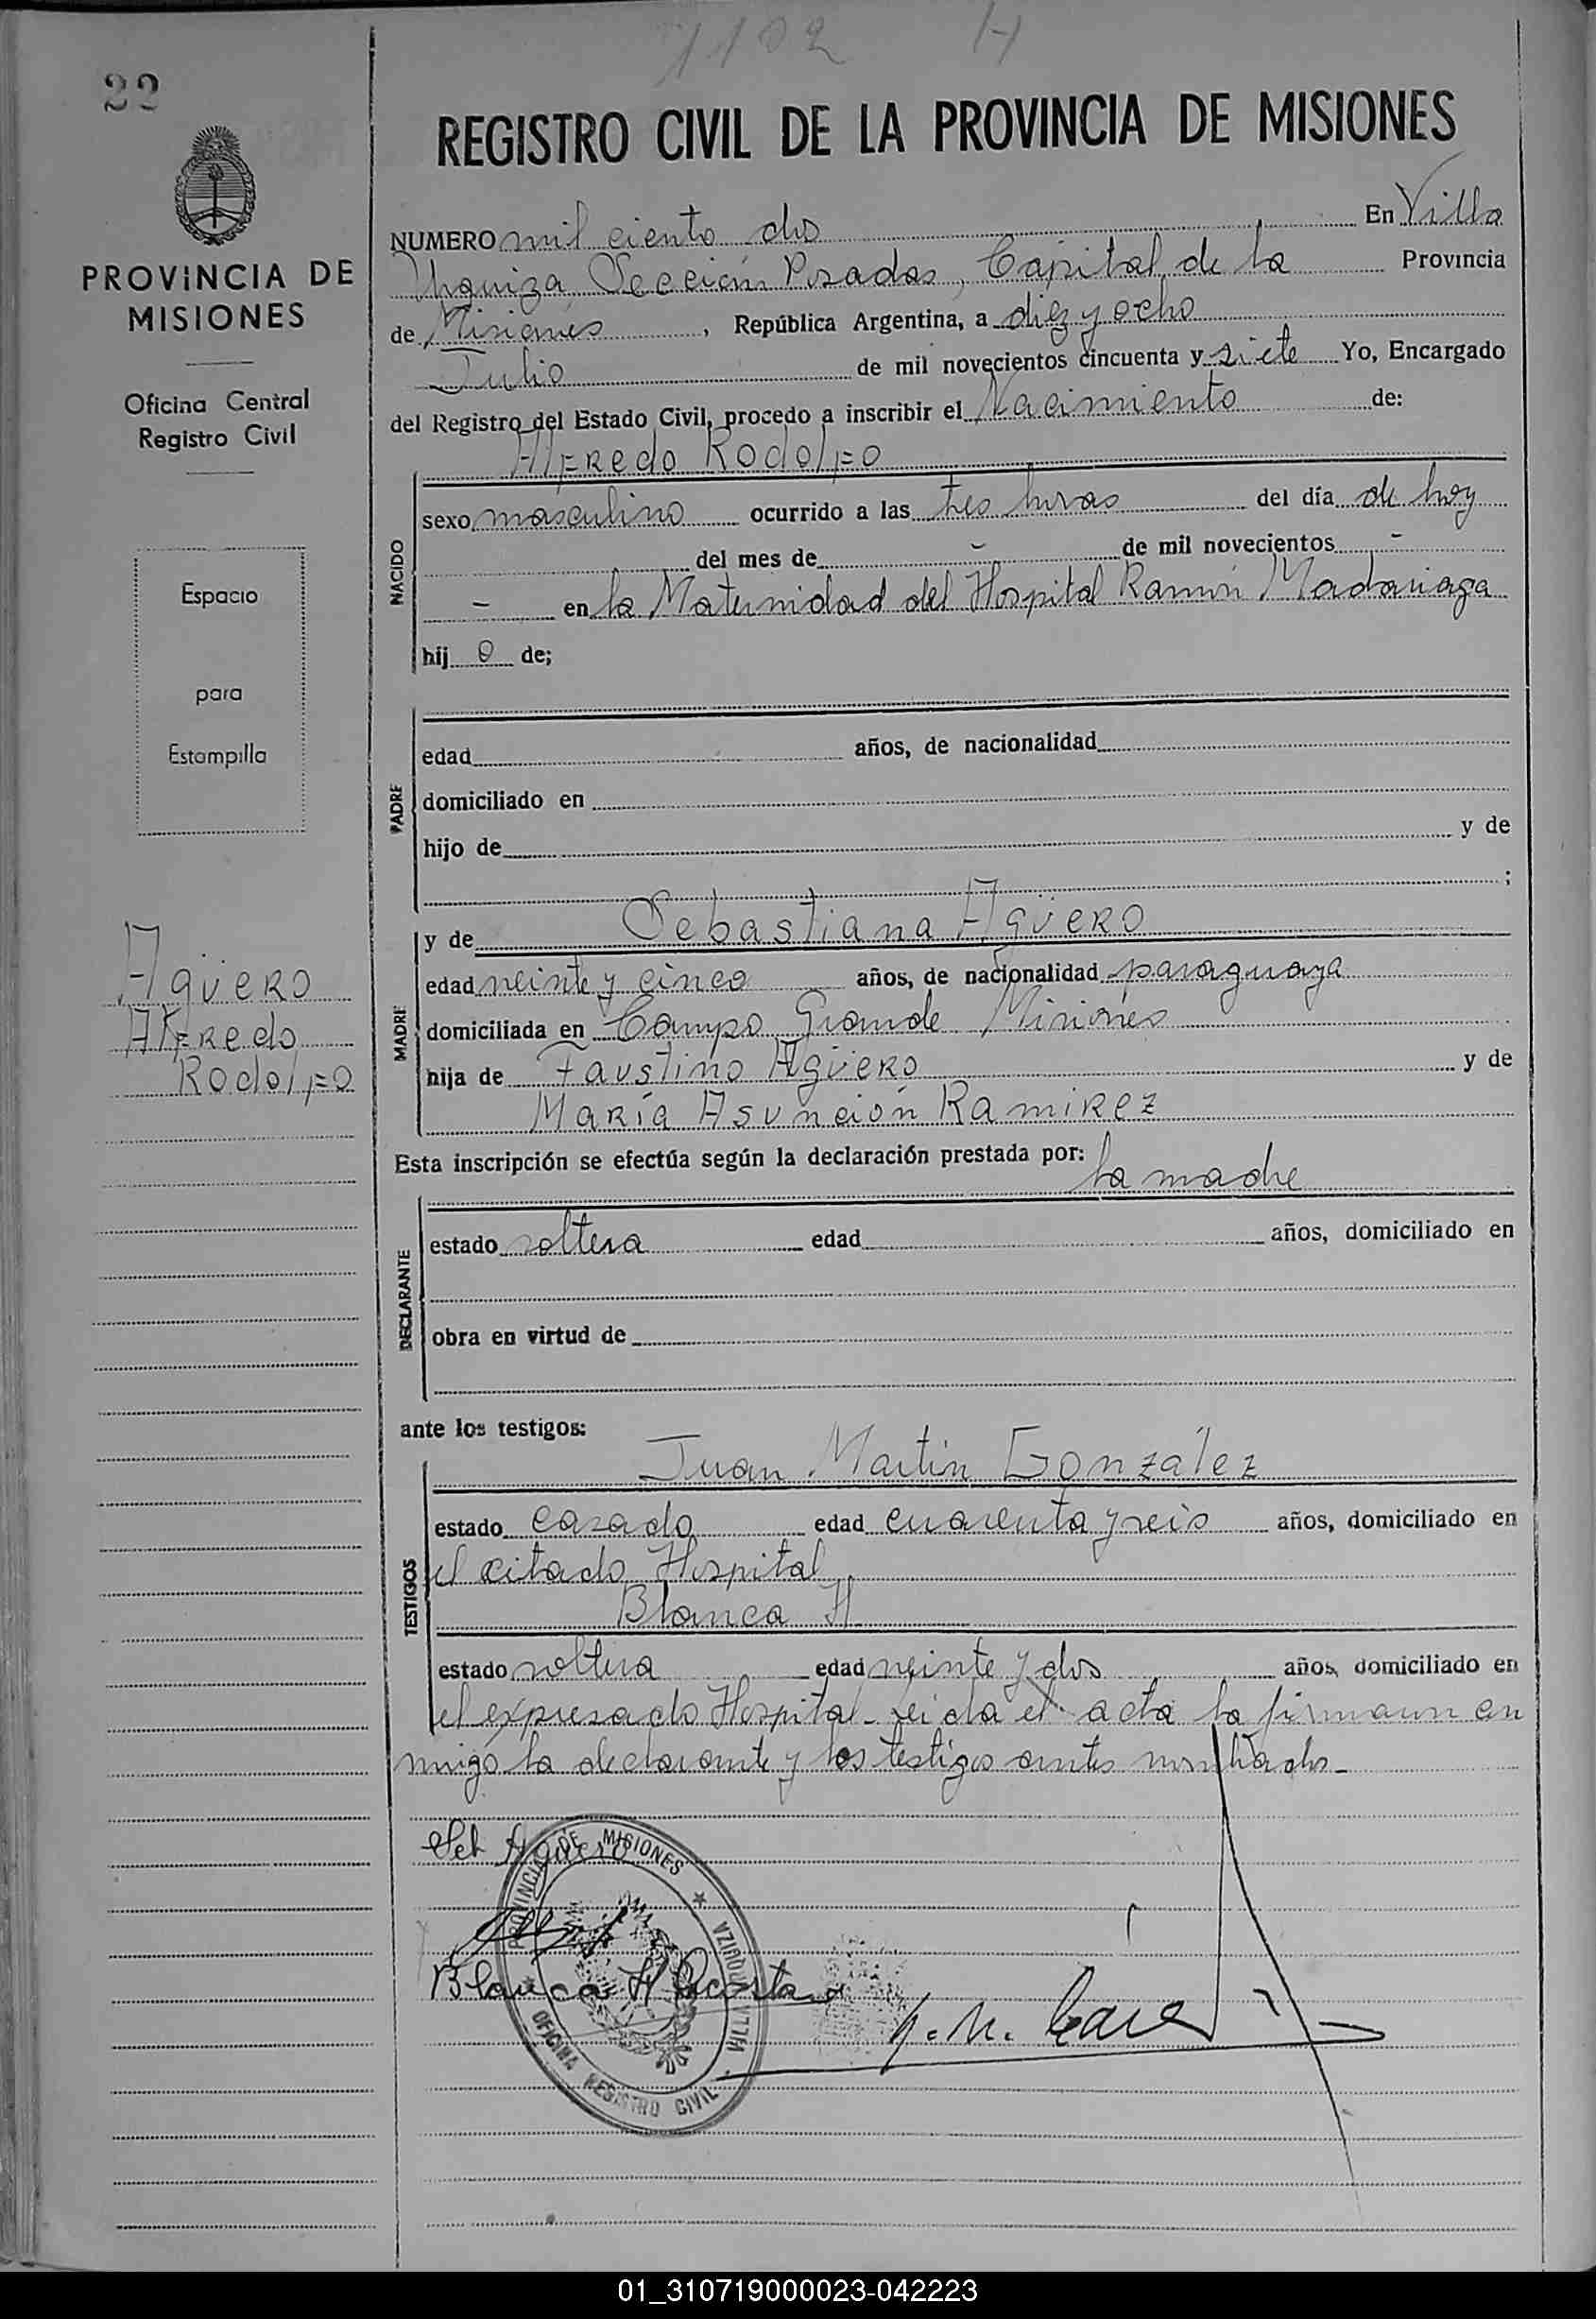 1102 H
22
REGISTRO CIVIL DE LA PROVINCIA DE MISIONES
PROVINCIA DE
MISIONES
Oficina Central
Registro Civil
Espacio
para
Estampilla
Agüero
Alfredo
Rodolfo
NUMERO mil ciento dos En Villa
Urquiza Sección Posadas, Capital de la Provincia
de Misiones, República Argentina, a diez y ocho
Julio de mil novecientos cincuenta y siete Yo, Encargado
del Registro del Estado Civil, procedo a inscribir el Nacimiento de:
Alfredo Rodolfo
NACIDO
sexo masculino ocurrido a las tres horas del día de hoy
del mes de - de mil novecientos -
- en la Maternidad del Hospital Ramón Madariaga
hij o de;
PADRE
edad años, de nacionalidad
domiciliado en
hijo de y de
;
MADRE
y de Sebastiana Agüero
edad veinte y cinco años, de nacionalidad paraguaya
domiciliada en Campo Grande Misiones
hija de Faustino Agüero y de
María Asunción Ramirez
Esta inscripción se efectúa según la declaración prestada por: la madre
DECLARANTE
estado soltera edad años, domiciliado en
obra en virtud de
ante los testigos:
TESTIGOS
Juan Martin González
estado casado edad cuarenta y seis años, domiciliado en
el citado Hospital
Blanca H
estado soltera edad veinte y dos años, domiciliado en
el expresado Hospital - leida el acta la firmaron con
migo la declarante y los testigos antes nombrados -
Seb Agüero
Blanca H Acosta
PROVINCIA DE MISIONES
VILLA URQUIZA
OFICINA REGISTRO CIVIL
01_310719000023-042223